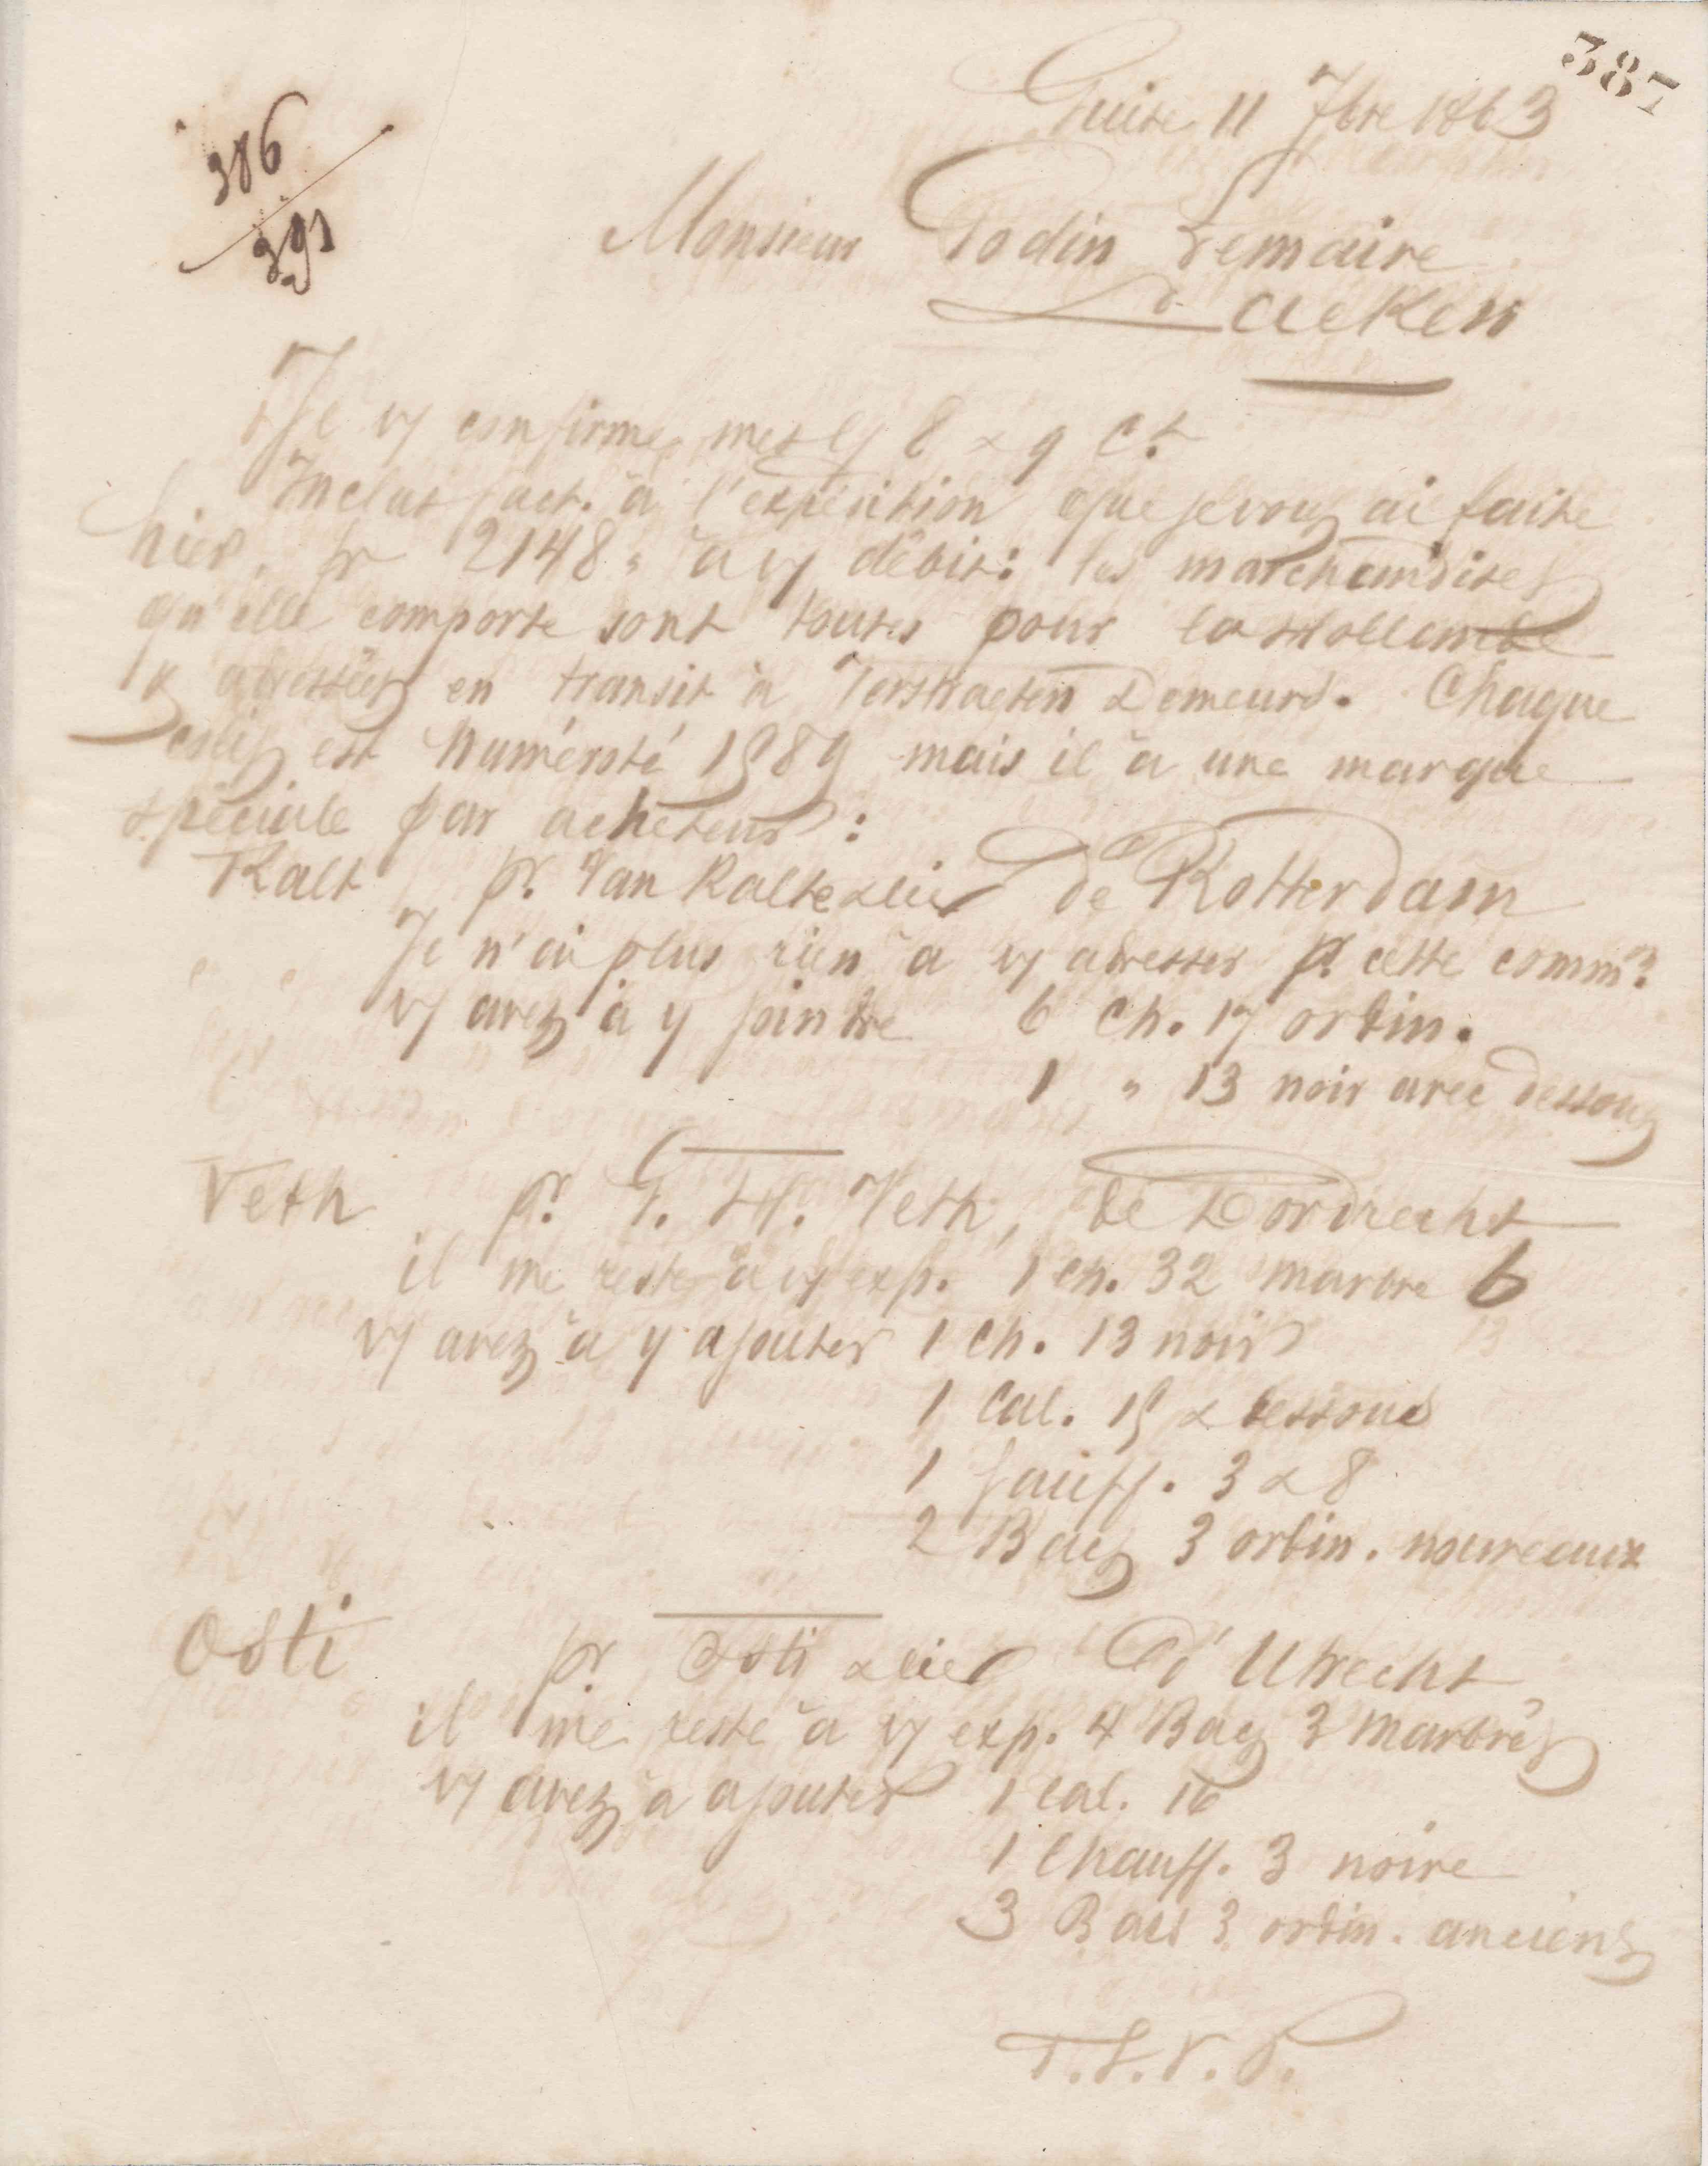 387
Guise 11 7bre 1863
386
391
Monsieur Godin Lemaire
Laeken
Je vs confirme mes ls 8 & 9 Ct.
Inclus fact. à l'expédition que je vous ai faite
hier, fr 2148 " à vs débit: les marchandises
qu'elle comporte sont toutes pour la Hollande
& adressées en transit à Verstraeten Demeurs. Chaque
colis est numéroté 1989 mais il a une marque
spéciale par acheteur :
Ralt pr. Van Ralte & Cie de Rotterdam
Je n'ai plus rien à vs adresser pr cette common.
vs avez à y joindre 6 Ch. 17 ordin.
1 " 13 noir avec dessous
Veth pr. G. H. Veth, de Dordrecht
il me reste à vs exp. 1 ch. 32 marbre 6
vs avez à y ajouter 1 Ch. 13 noir
1 Cal. 15 & dessous
1 chauff. 3 & 8
2 Bacs 3 ordin. nouveaux
Osti pr Osti & Cie d'Utrecht
il me reste à vs exp. 4 Bacs 3 marbrés
vs avez à ajouter 1 Cal. 16
1 Chauff. 3 noire
3 Bacs 3 ordin. anciens
T.S.V.P.